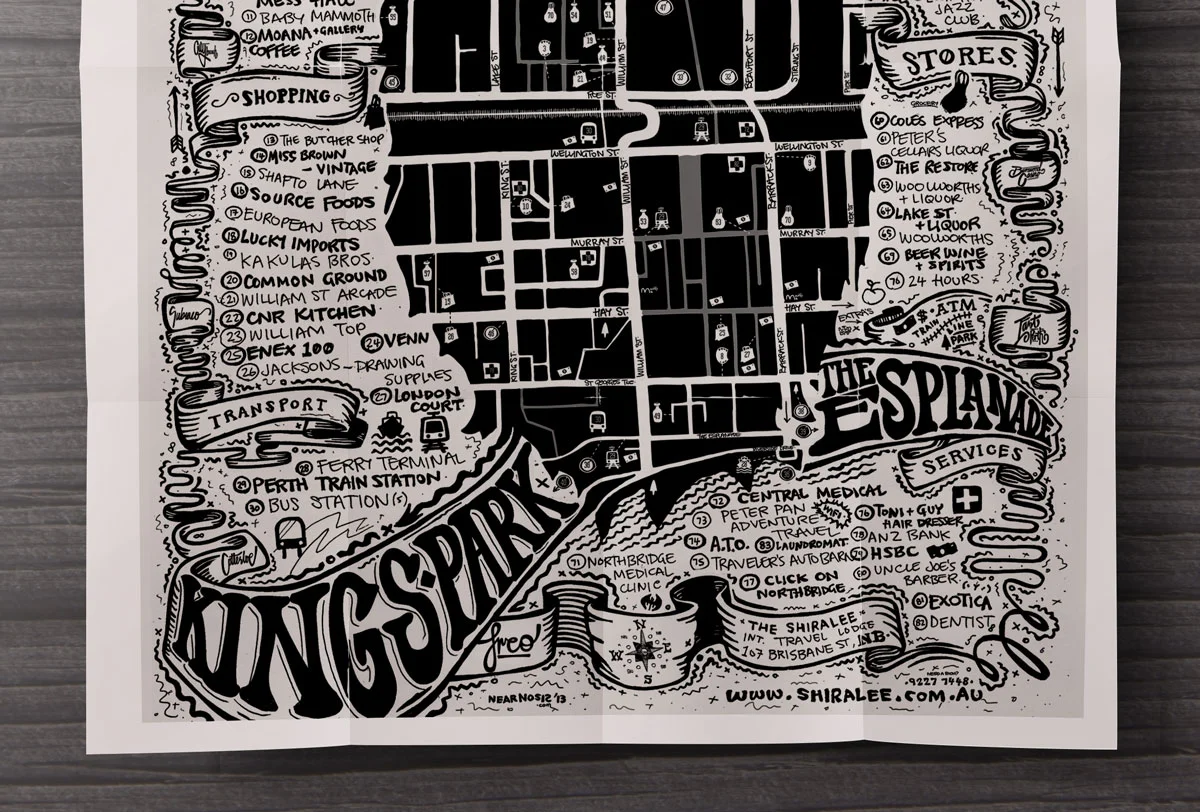 MESS HALL
11 BABY MAMMOTH
12 MOANA + GALLERY
COFFEE
SHOPPING
13 THE BUTCHER SHOP
14 MISS BROWN
- VINTAGE
15 SHAFTO LANE
16 SOURCE FOODS
17 EUROPEAN FOODS
18 LUCKY IMPORTS
19 KAKULAS BROS.
20 COMMON GROUND
21 WILLIAM ST ARCADE
22 CNR KITCHEN
23 WILLIAM TOP
24 VENN
25 ENEX 100
26 JACKSONS - DRAWING
SUPPLIES
27 LONDON
COURT
Subiaco
TRANSPORT
28 FERRY TERMINAL
29 PERTH TRAIN STATION
30 BUS STATION(S)
Cottesloe
KINGS·PARK
LAKE ST.
WILLIAM ST.
BEAUFORT ST.
STIRLING ST.
ROE ST.
WELLINGTON ST.
WELLINGTON ST.
KING ST.
WILLIAM ST.
BARRACK ST.
MURRAY ST.
MURRAY ST.
HAY ST.
HAY ST.
KING ST.
WILLIAM ST.
BARRACK ST.
ST GEORGES TCE
THE ESPLANADE
JAZZ
CLUB
STORES
GROCERY
60 COLES EXPRESS
61 PETER'S
CELLARS LIQUOR
62 THE RESTORE
63 WOOLWORTHS
+ LIQUOR
64 LAKE ST.
+ LIQUOR
65 WOOLWORTHS
69 BEER WINE
+ SPIRITS
76 24 HOURS
EXTRAS
$ · ATM
TRAIN LINE
PARK
THE ESPLANADE
SERVICES
72 CENTRAL MEDICAL
73 PETER PAN
ADVENTURE
TRAVEL
WIFI
74 A.T.O.
83 LAUNDROMAT
75 TRAVELER'S AUTOBARN
71 NORTHBRIDGE
MEDICAL
CLINIC
77 CLICK ON
NORTHBRIDGE
76 TONI + GUY
HAIR DRESSER
78 ANZ BANK
79 HSBC
80 UNCLE JOE'S
BARBER
81 EXOTICA
82 DENTIST
freo
N
W E
S
THE SHIRALEE
INT. TRAVEL LODGE
107 BRISBANE ST, NB
9227 7448
NEARNOS12 '13
.COM
WWW.SHIRALEE.COM.AU